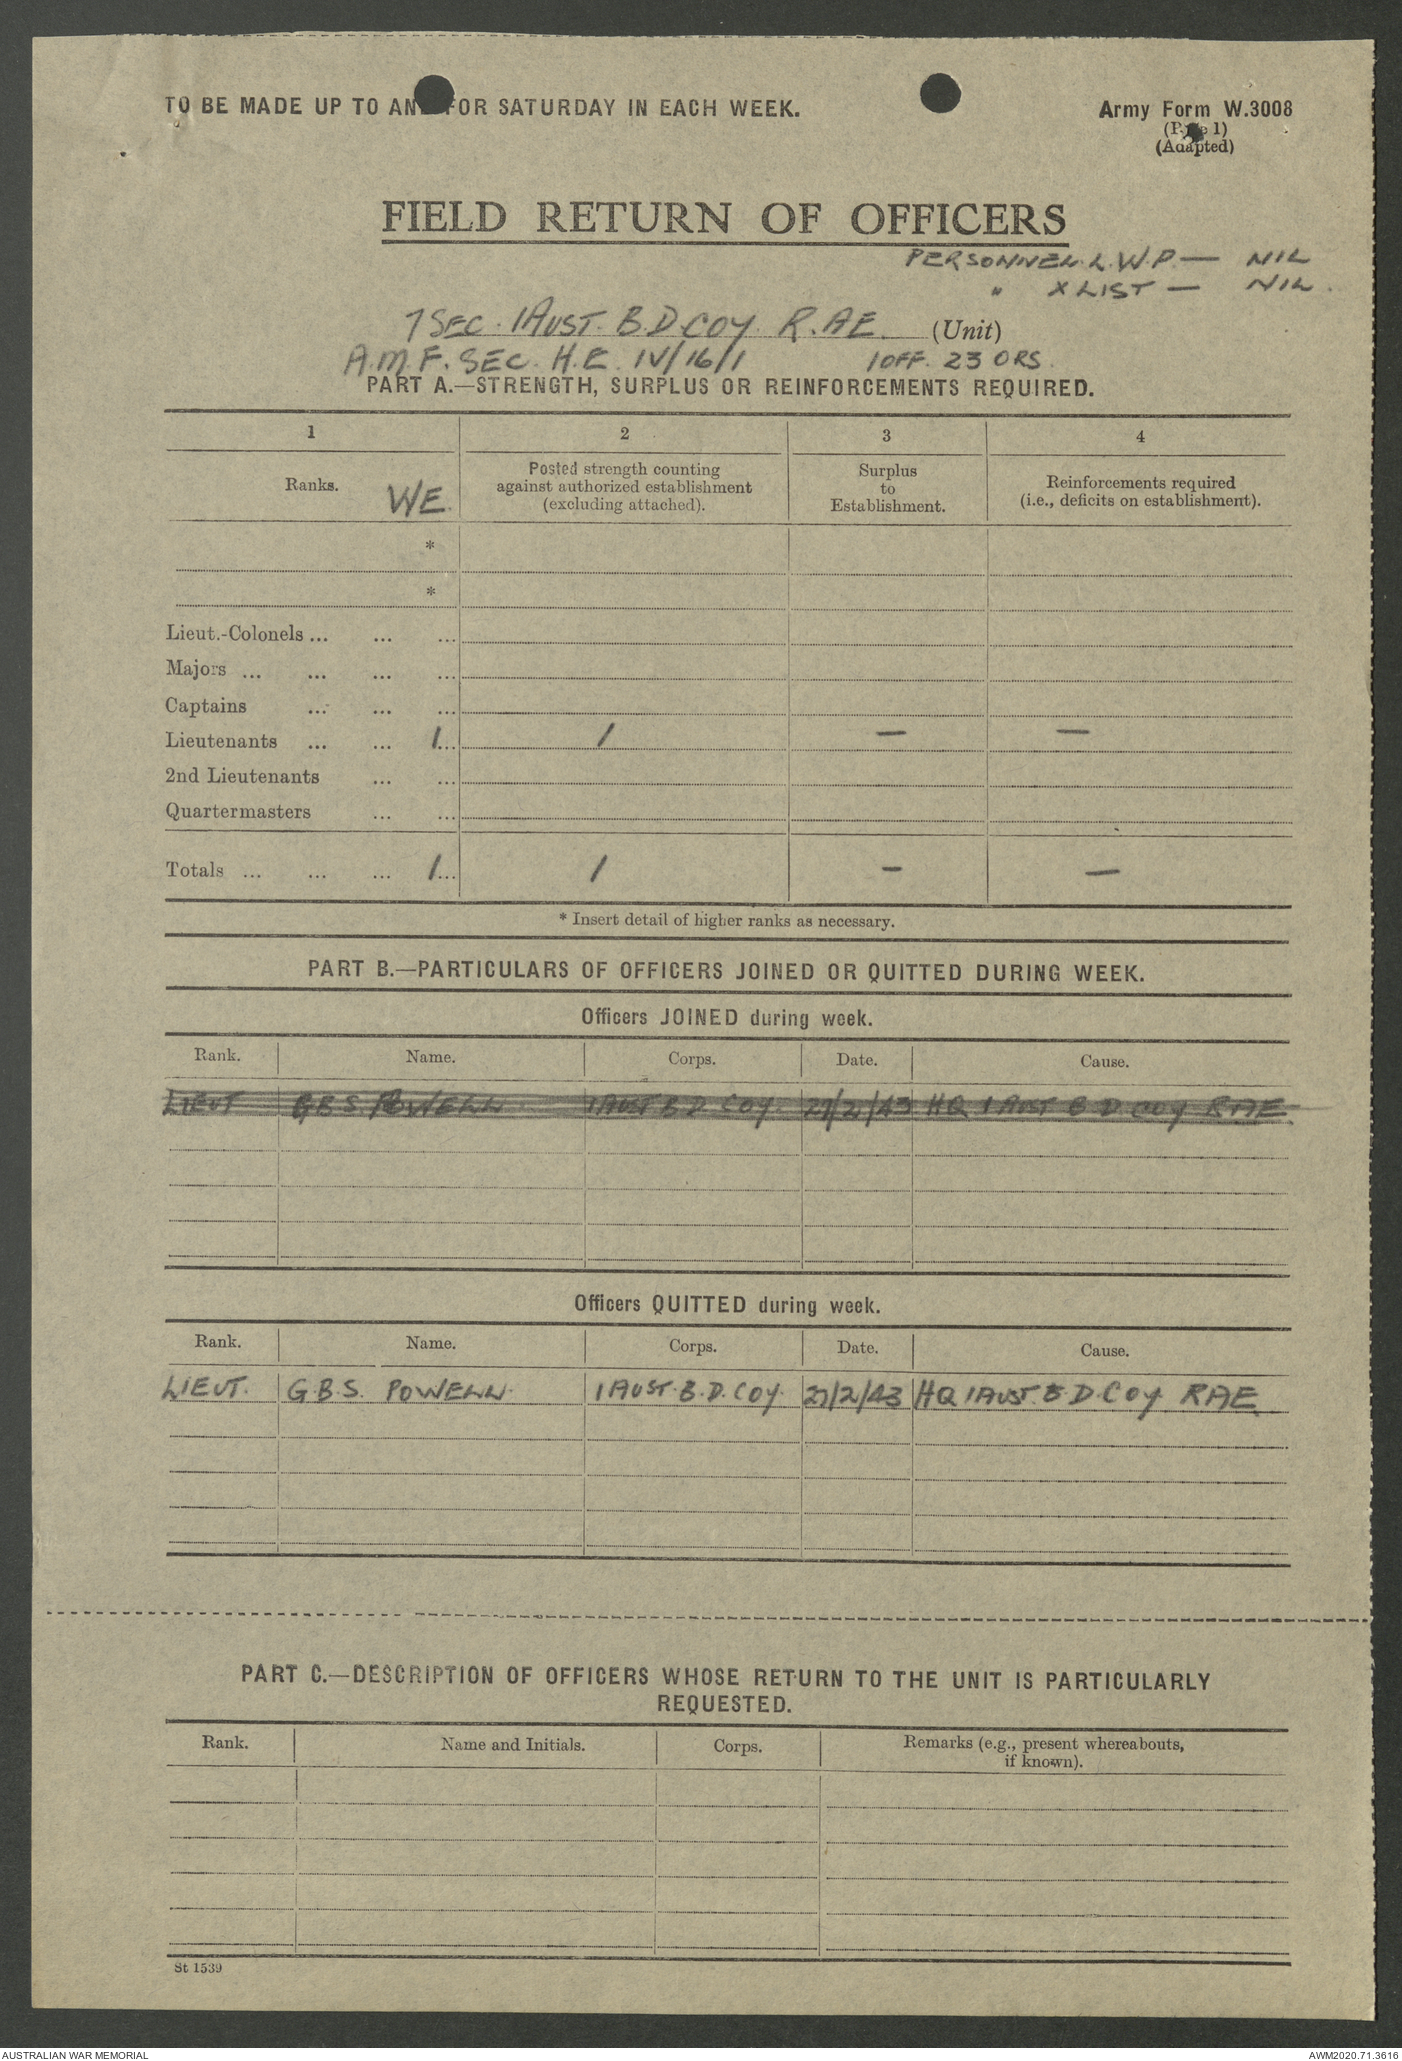 TO BE MADE UP TO AND FOR SATURDAY IN EACH WEEK.
Army Form W.3008
(Page 1)
(Adapted)
FIELD RETURN OF OFFICERS
PERSONNEL L.W.P — NIL
" X LIST — NIL.
7 SEC. 1 AUST. B.D. COY. R.AE. (Unit)
A.M.F. SEC. H.E. IV/16/1 1 OFF. 23 ORS.
PART A.—STRENGTH, SURPLUS OR REINFORCEMENTS REQUIRED.
1 2 3 4
Ranks. WE. Posted strength counting against authorized establishment (excluding attached). Surplus to Establishment. Reinforcements required (i.e., deficits on establishment).
*
*
Lieut.-Colonels ... ... ...
Majors ... ... ... ...
Captains ... ... ...
Lieutenants ... ... 1... 1 — —
2nd Lieutenants ... ...
Quartermasters ... ...
Totals ... ... ... 1... 1 — —
* Insert detail of higher ranks as necessary.
PART B.—PARTICULARS OF OFFICERS JOINED OR QUITTED DURING WEEK.
Officers JOINED during week.
Rank. Name. Corps. Date. Cause.
LIEUT GBS POWELL. 1 AUST B D COY. 27/2/43 HQ 1 AUST B D COY RAE.
Officers QUITTED during week.
Rank. Name. Corps. Date. Cause.
LIEUT. G.B.S. POWELL. 1 AUST. B.D. COY. 27/2/43 HQ 1 AUST. B.D. COY RAE.
PART C.—DESCRIPTION OF OFFICERS WHOSE RETURN TO THE UNIT IS PARTICULARLY
REQUESTED.
Rank. Name and Initials. Corps. Remarks (e.g., present whereabouts, if known).
St 1539
AUSTRALIAN WAR MEMORIAL
AWM2020.71.3616